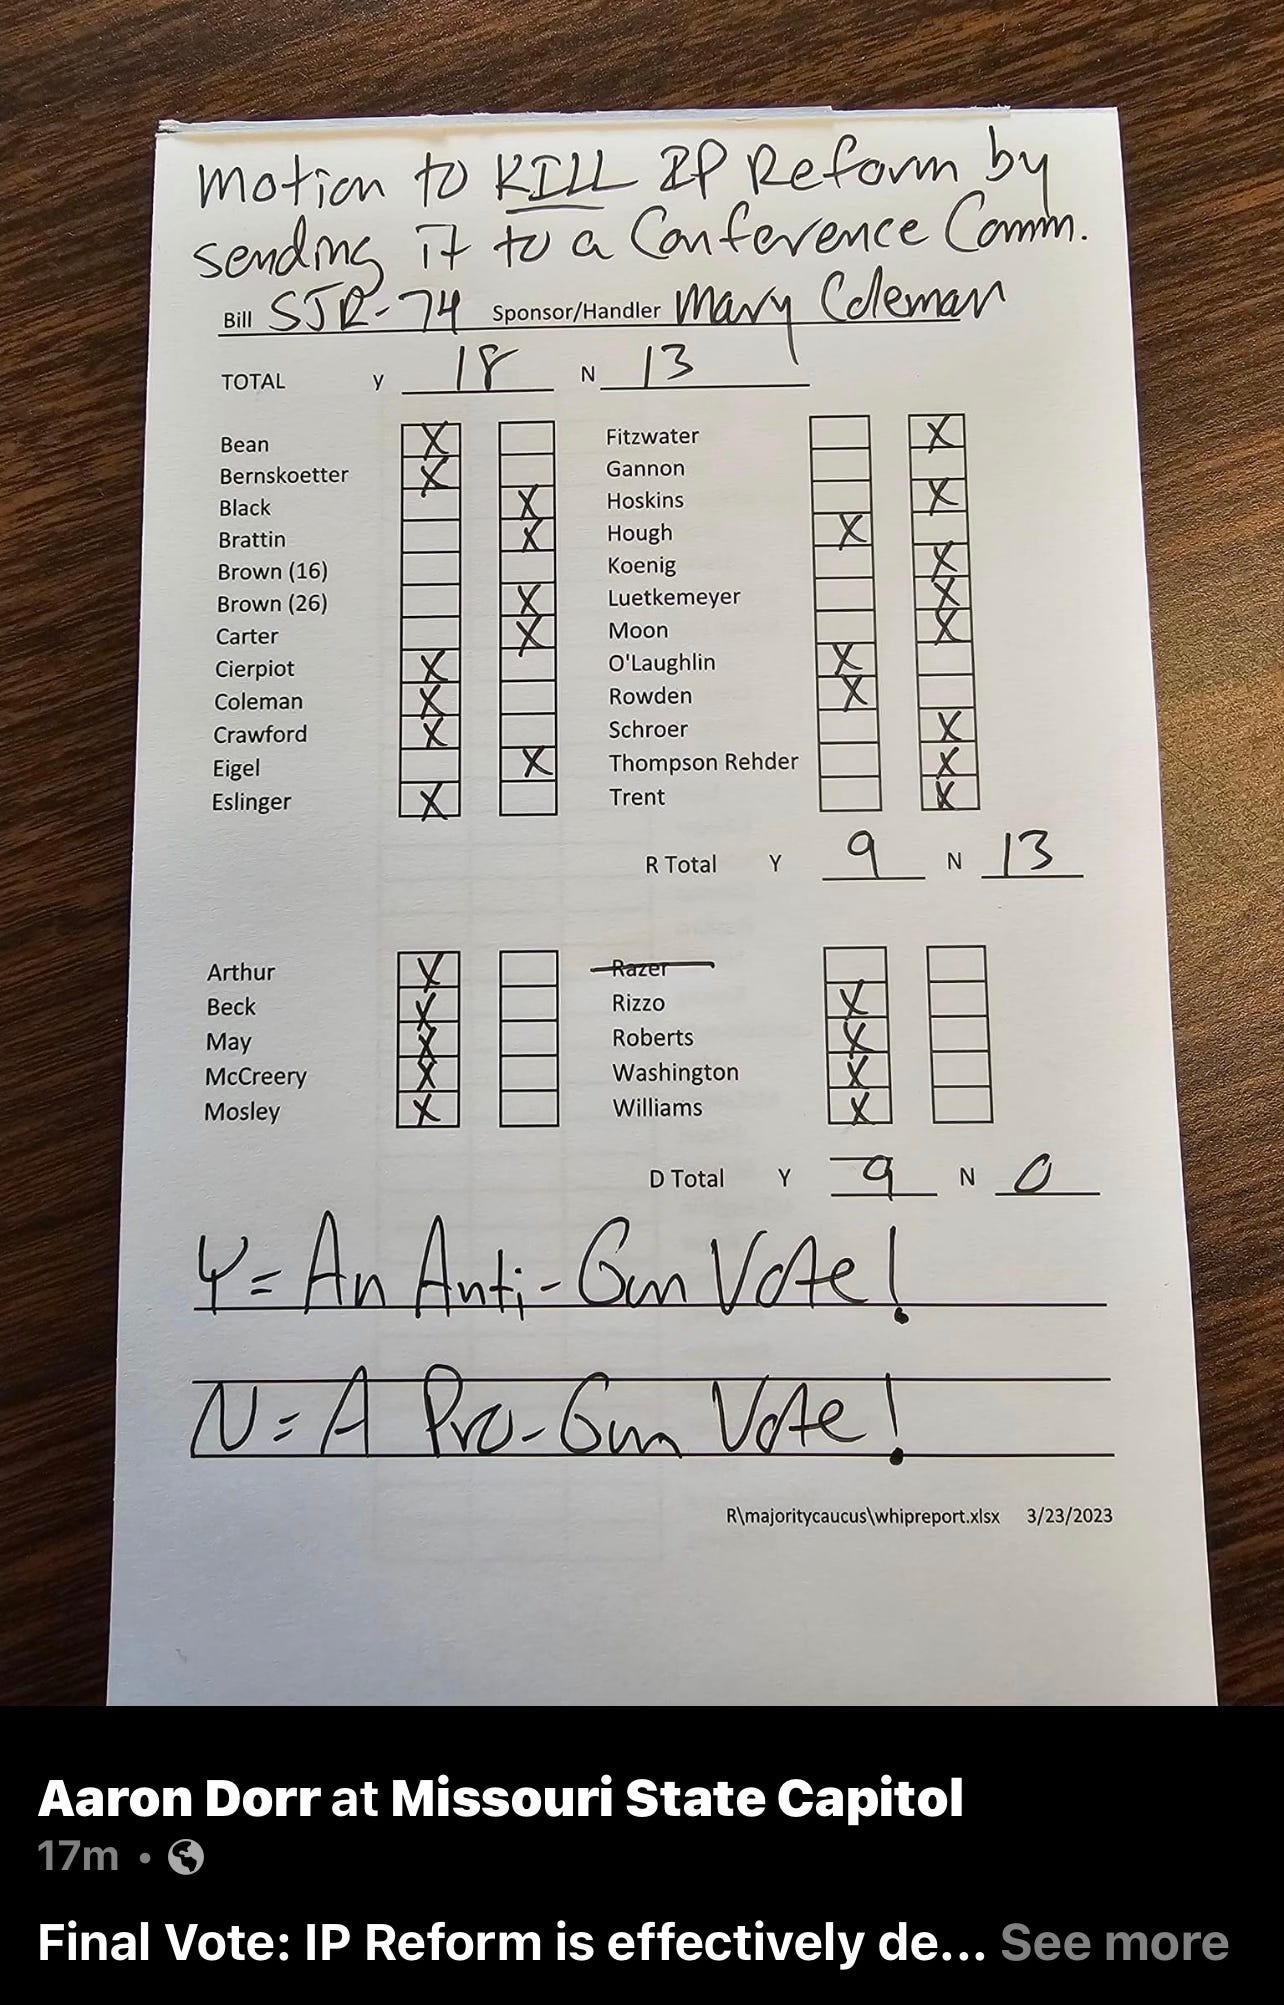 Motion to KILL IP Reform by
sending it to a Conference Comm.
Bill SJR-74 Sponsor/Handler Mary Coleman
TOTAL y 18 N 13
Bean X
Bernskoetter X
Black X
Brattin X
Brown (16)
Brown (26) X
Carter X
Cierpiot X
Coleman X
Crawford X
Eigel X
Eslinger X
Fitzwater X
Gannon
Hoskins X
Hough X
Koenig X
Luetkemeyer X
Moon X
O'Laughlin X
Rowden X
Schroer X
Thompson Rehder X
Trent X
R Total Y 9 N 13
Arthur X
Beck X
May X
McCreery X
Mosley X
Razer
Rizzo X
Roberts X
Washington X
Williams X
D Total Y 9 N 0
Y = An Anti-Gun Vote!
N = A Pro-Gun Vote!
R\majoritycaucus\whipreport.xlsx 3/23/2023
Aaron Dorr at Missouri State Capitol
17m •
Final Vote: IP Reform is effectively de... See more